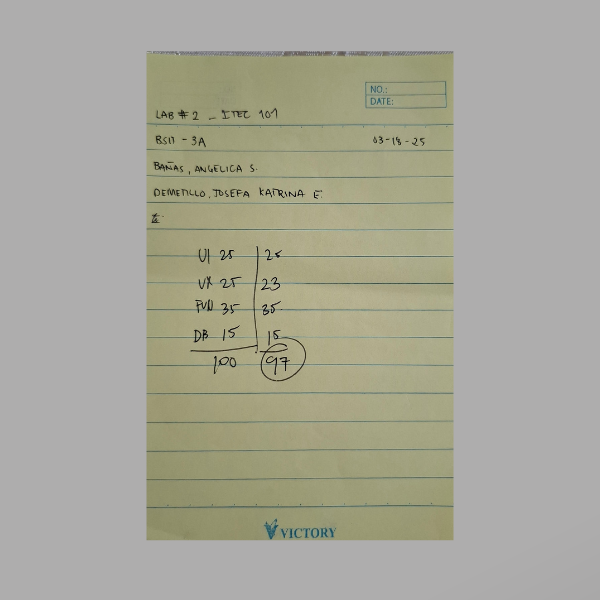 NO.:
DATE:
LAB #2 - ITEC 101
BSIT - 3A 03-18-25
BAÑAS, ANGELICA S.
DEMETILLO, JOSEFA KATRINA E.
UI 25 25
UX 25 23
FUN 35 35
DB 15 15
100 97
VICTORY